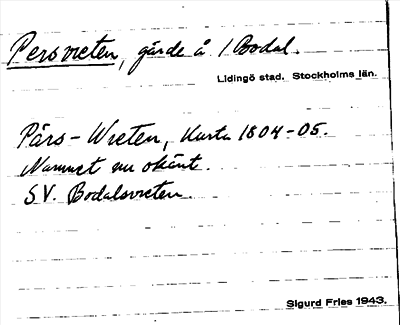 Persvreten, gärde å 1 Bodal.
Lidingö stad. Stockholms län.
Pårs-Wreten, Karta 1804-05.
Namnet nu okänt.
SV. Bodalsvreten.
Sigurd Fries 1943.